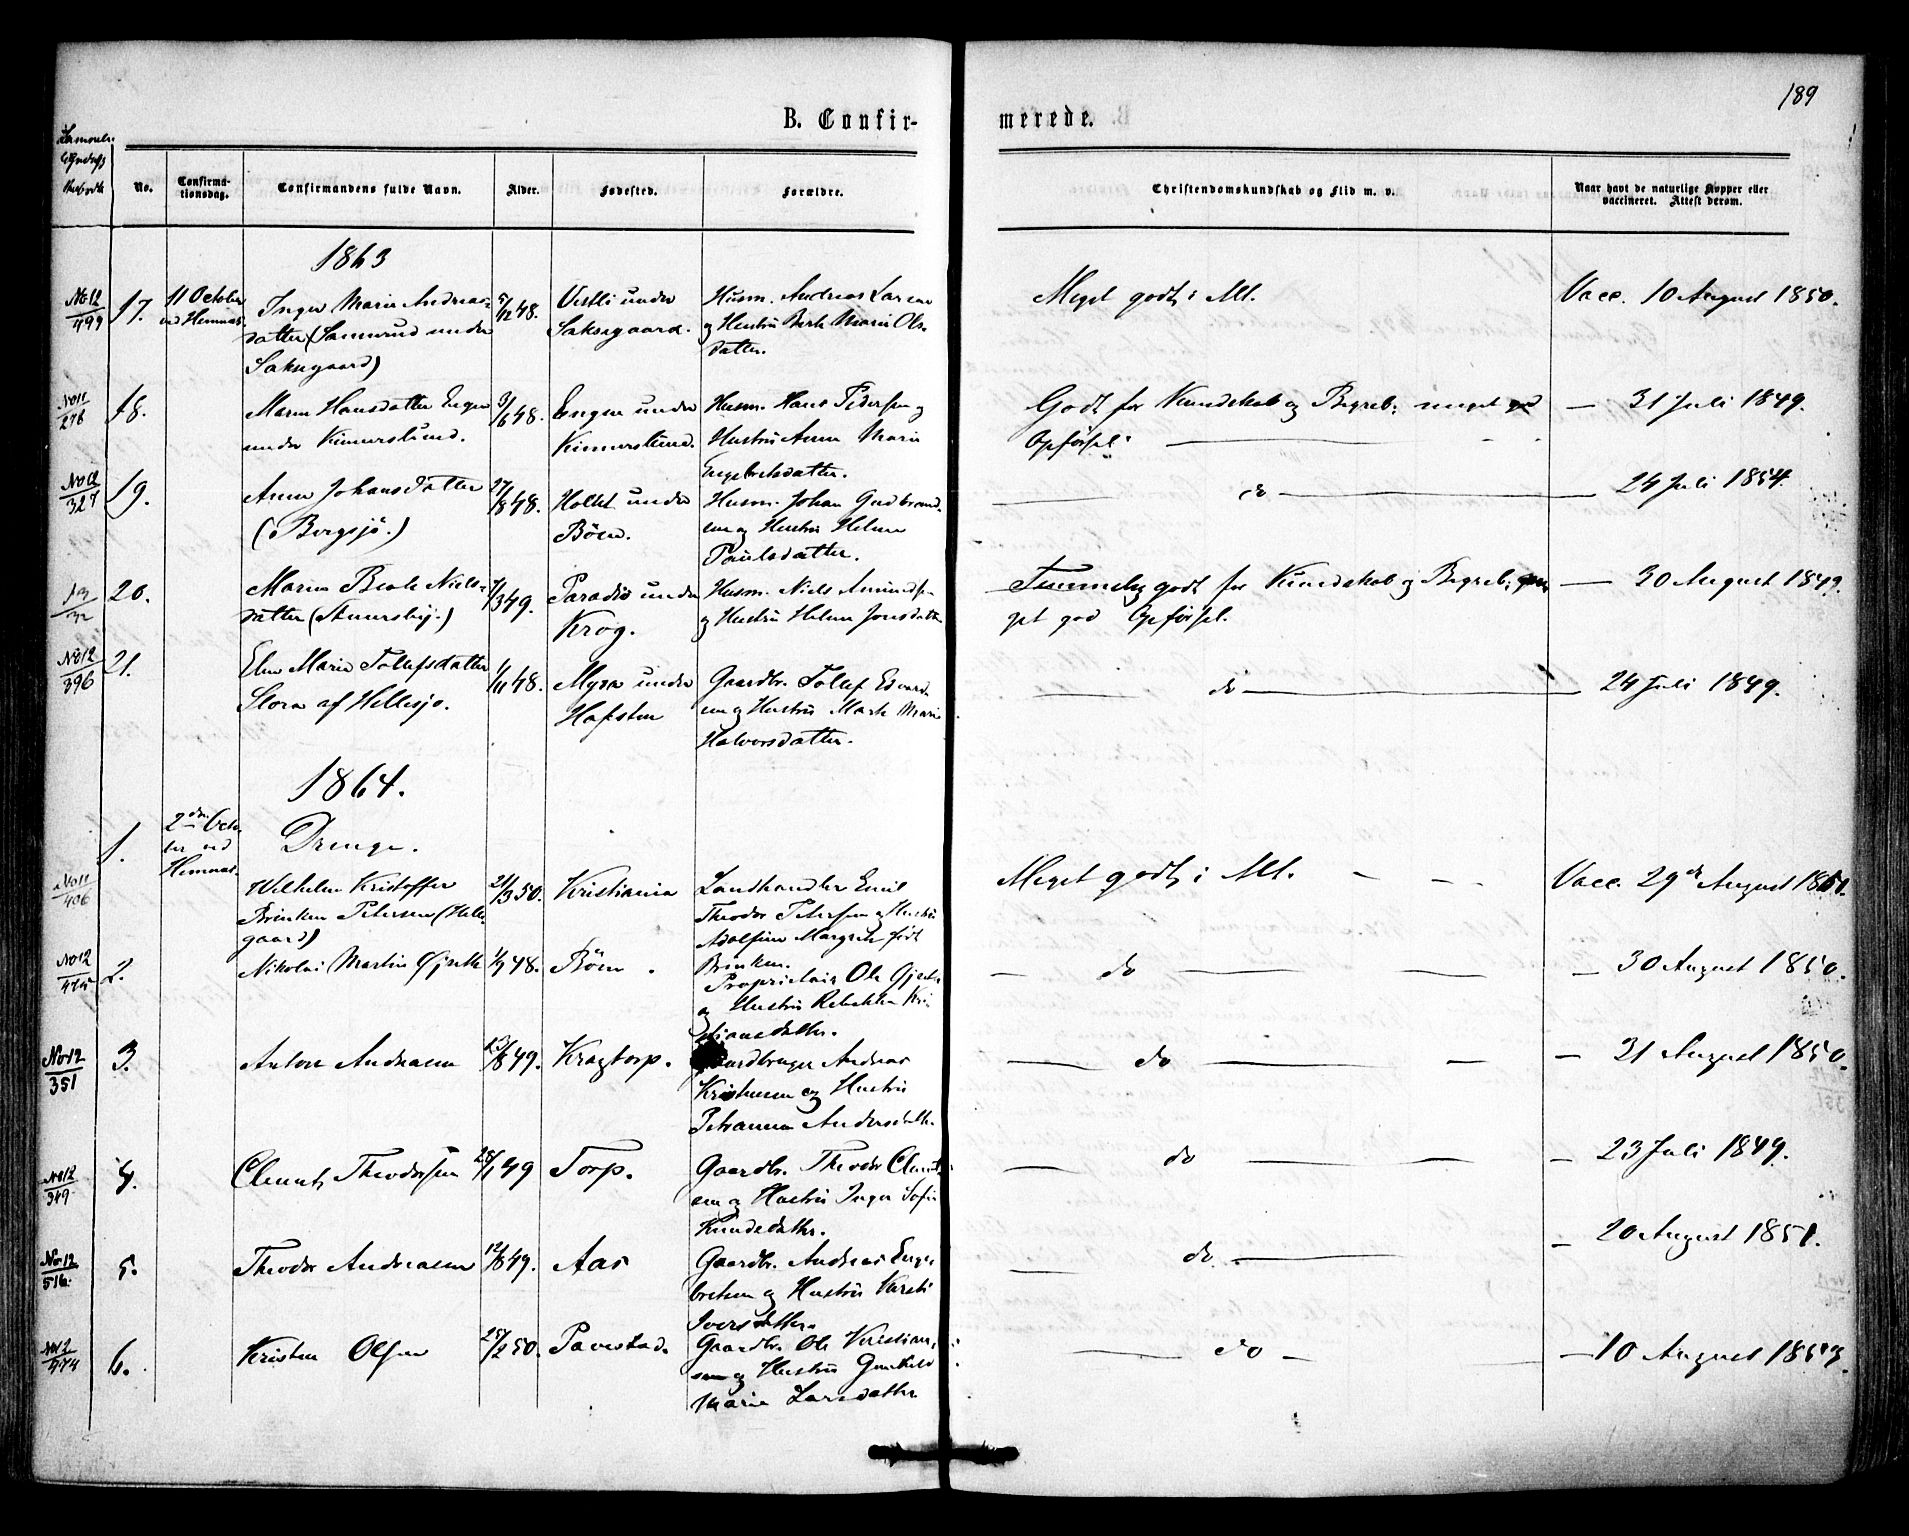 189
B. Confir-
merede.
No.
Confirma-
tionsdag.
Confirmandens fulde Navn.
Alder.
Fødested.
Forældre.
Christendomskundskab og Flid m. v.
Naar havt de naturlige Kopper eller
vaccineret. Attest derom.
1863
No 12
499
17.
11 October
ved Hemnæs.
Inger Marie Andreas-
datter (Sannerud under
Saksegaard)
5/12 48.
Vestli under
Saksegaard.
Husm. Andreas Larsen
og Hustru Berte Marie Ols-
datter.
Meget godt i Alt.
Vacc. 10 August 1850.
No 11
278
18.
Maren Hansdatter Engen
under Kinnerslund.
3/6 48.
Engen under
Kinnerslund.
Husm. Hans Pedersen og
Hustru Anne Marie
Engebretsdatter.
Godt for Kundskab og Begreb; meget god
Opførsel
— 31 Juli 1849.
No 12
327
19.
Anne Johansdatter
(Bergsjø.)
27/8 48.
Holtet under
Böen.
Husm. Johan Gudbrand-
sen og Hustru Helene
Paulsdatter.
— do —
24 Juli 1854.
13
32
20.
Maren Beate Niels-
datter (Aamersby.)
1/3 49.
Paradis under
Krog.
Husm. Niels Amundsen
og Hustru Helene Jonsdatter
Temmelig godt for Kundskab og Begreb;
get god Opførsel.
— 30 August 1849.
No 12
396
21.
Elen Marie Tollefsdatter
Slora af Hellesjø.
1/11 48.
Myra under
Hafsten
Gaardbr. Tollef Edvard-
sen og Hustru Marte Marie
Halvorsdatter.
— do —
24 Juli 1849.
1864.
Drenge.
1.
2den Octo-
ber ved
Hemnæs.
No 11
406
Wilhelm Kristoffer
Brinken Petersen (Helle-
gaard)
21/3 50.
Kristiania
Landhandler Emil
Theodor Petersen og Hustru
Adolfine Margrete født
Brinken.
Meget godt i Alt. — —
Vacc. 29de August 1851.
No 12
2.
Nikolai Martin Gjestte
1/9 48.
Böen.
Proprietair Ole Gjestte
og Hustru Rebekka Kri-
stiansdatter.
— do —
— 30 August 1850.
No 12
351
3.
Anton Andreasen
23/8 49.
Kragtorp.
Gaardbruger Andreas
Kristensen og Hustru
Johanne Andersdatter.
— do —
— 21 August 1850.
No 12
349
4.
Clemet Theodorsen
28/1 49
Torp.
Gaardbr. Theodor Clemet-
sen og Hustru Inger Sofie
Knudsdatter.
— do —
— 23 Juli 1849.
No 12
516.
5.
Theodor Andreasen
12/8 49.
Aas
Gaardbr. Andreas Enge-
bretsen og Hustru Kirsti
Iversdatter.
— do. —
— 20 August 1851.
No 12
474
6.
Kristen Olsen
25/2 50.
Pavestad.
Gaardbr. Ole Kristian-
sen og Hustru Gunhild
Marie Larsdatter
— do —
— 10 August 1853.